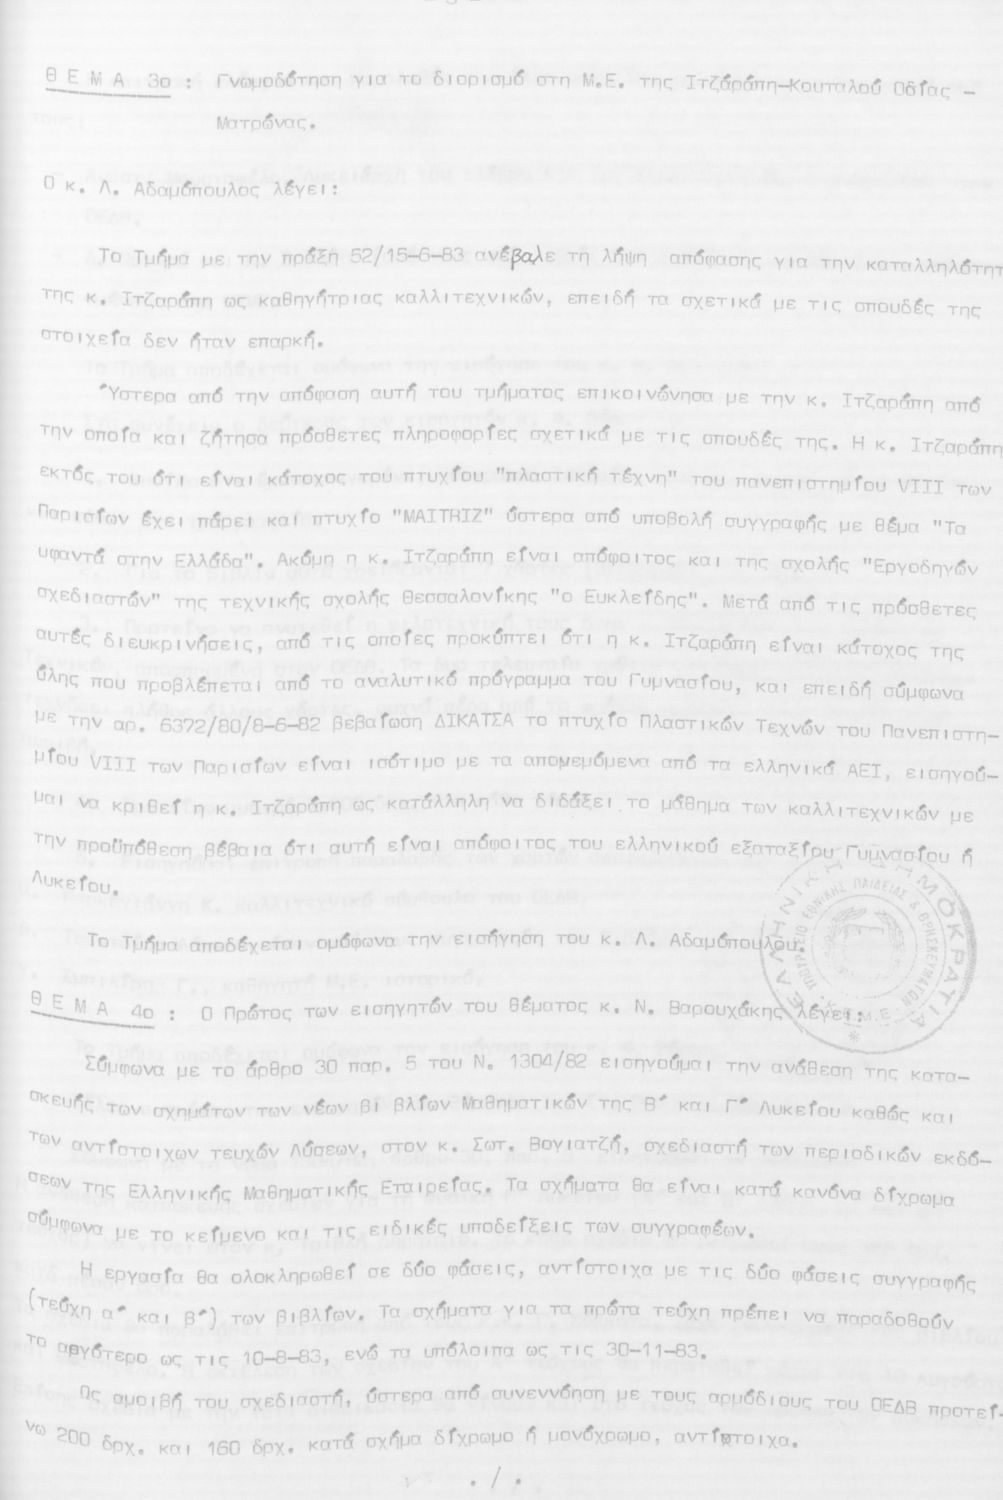 Θ Ε Μ Α 3ο : Γνωμοδότηση για το διορισμό στη Μ.Ε. της Ιτζάράπη-Κουταλού Οδίας -
Ματρώνας.
Ο κ. Λ. Αδαμόπουλος λέγει:
Το Τμήμα με την πράξη 52/15-6-83 ανέβαλε τη λήψη απόφασης για την καταλληλότητ
της κ. Ιτζαράπη ως καθηγήτριας καλλιτεχνικών, επειδή τα σχετικά με τις σπουδές της
στοιχεία δεν ήταν επαρκή.
Ύστερα από την απόφαση αυτή του τμήματος επικοινώνησα με την κ. Ιτζαράπη από
την οποία και ζήτησα πρόσθετες πληροφορίες σχετικά με τις σπουδές της. Η κ. Ιτζαράπη
εκτός του ότι είναι κάτοχος του πτυχίου "πλαστική τέχνη" του πανεπιστημίου VIII των
Παρισίων έχει πάρει και πτυχίο "MAITRIZ" ύστερα από υποβολή συγγραφής με θέμα "Τα
υφαντά στην Ελλάδα". Ακόμη η κ. Ιτζαράπη είναι απόφοιτος και της σχολής "Εργοδηγών
σχεδιαστών" της τεχνικής σχολής Θεσσαλονίκης "ο Ευκλείδης". Μετά από τις πρόσθετες
αυτές διευκρινήσεις, από τις οποίες προκύπτει ότι η κ. Ιτζαράπη είναι κάτοχος της
ύλης που προβλέπεται από το αναλυτικό πρόγραμμα του Γυμνασίου, και επειδή σύμφωνα
με την αρ. 6372/80/8-6-82 βεβαίωση ΔΙΚΑΤΣΑ το πτυχίο Πλαστικών Τεχνών του Πανεπιστη-
μίου VIII των Παρισίων είναι ισότιμο με τα απομεμόμενα από τα ελληνικά ΑΕΙ, εισηγού-
μαι να κριθεί η κ. Ιτζαράπη ως κατάλληλη να διδάξει το μάθημα των καλλιτεχνικών με
την προϋπόθεση βέβαια ότι αυτή είναι απόφοιτος του ελληνικού εξαταξίου Γυμνασίου ή
Λυκείου.
Το Τμήμα αποδέχεται ομόφωνα την εισήγηση του κ. Λ. Αδαμόπουλου.
ΕΛΛΗΝΙΚΗ ΔΗΜΟΚΡΑΤΙΑ
ΥΠΟΥΡΓΕΙΟ ΕΘΝΙΚΗΣ ΠΑΙΔΕΙΑΣ & ΘΡΗΣΚΕΥΜΑΤΩΝ
Θ Ε Μ Α 4ο : Ο Πρώτος των εισηγητών του θέματος κ. Ν. Βαρουχάκης λέγει:
Σύμφωνα με το άρθρο 30 παρ. 5 του Ν. 1304/82 εισηγούμαι την ανάθεση της κατα-
σκευής των σχημάτων των νέων βι βλίων Μαθηματικών της Β΄ και Γ΄ Λυκείου καθώς και
των αντίστοιχων τευχών Λύσεων, στον κ. Σωτ. Βογιατζή, σχεδιαστή των περιοδικών εκδό-
σεων της Ελληνικής Μαθηματικής Εταιρείας. Τα σχήματα θα είναι κατά κανόνα δίχρωμα
σύμφωνα με το κείμενο και τις ειδικές υποδείξεις των συγγραφέων.
Η εργασία θα ολοκληρωθεί σε δύο φάσεις, αντίστοιχα με τις δύο φάσεις συγγραφής
(τεύχη α΄ και β΄) των βιβλίων. Τα σχήματα για τα πρώτα τεύχη πρέπει να παραδοθούν
το αργότερο ως τις 10-8-83, ενώ τα υπόλοιπα ως τις 30-11-83.
Ως αμοιβή του σχεδιαστή, ύστερα από συνεννόηση με τους αρμόδιους του ΟΕΔΒ προτεί-
νω 200 δρχ. και 160 δρχ. κατά σχήμα δίχρωμο ή μονόχρωμο, αντίστοιχα.
. / .